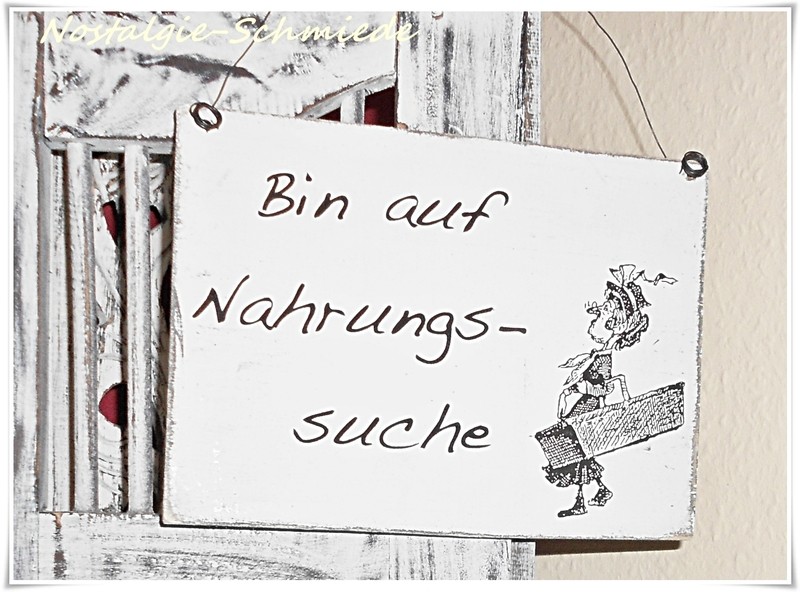 Nostalgie-Schmiede
Bin auf
Nahrungs-
suche